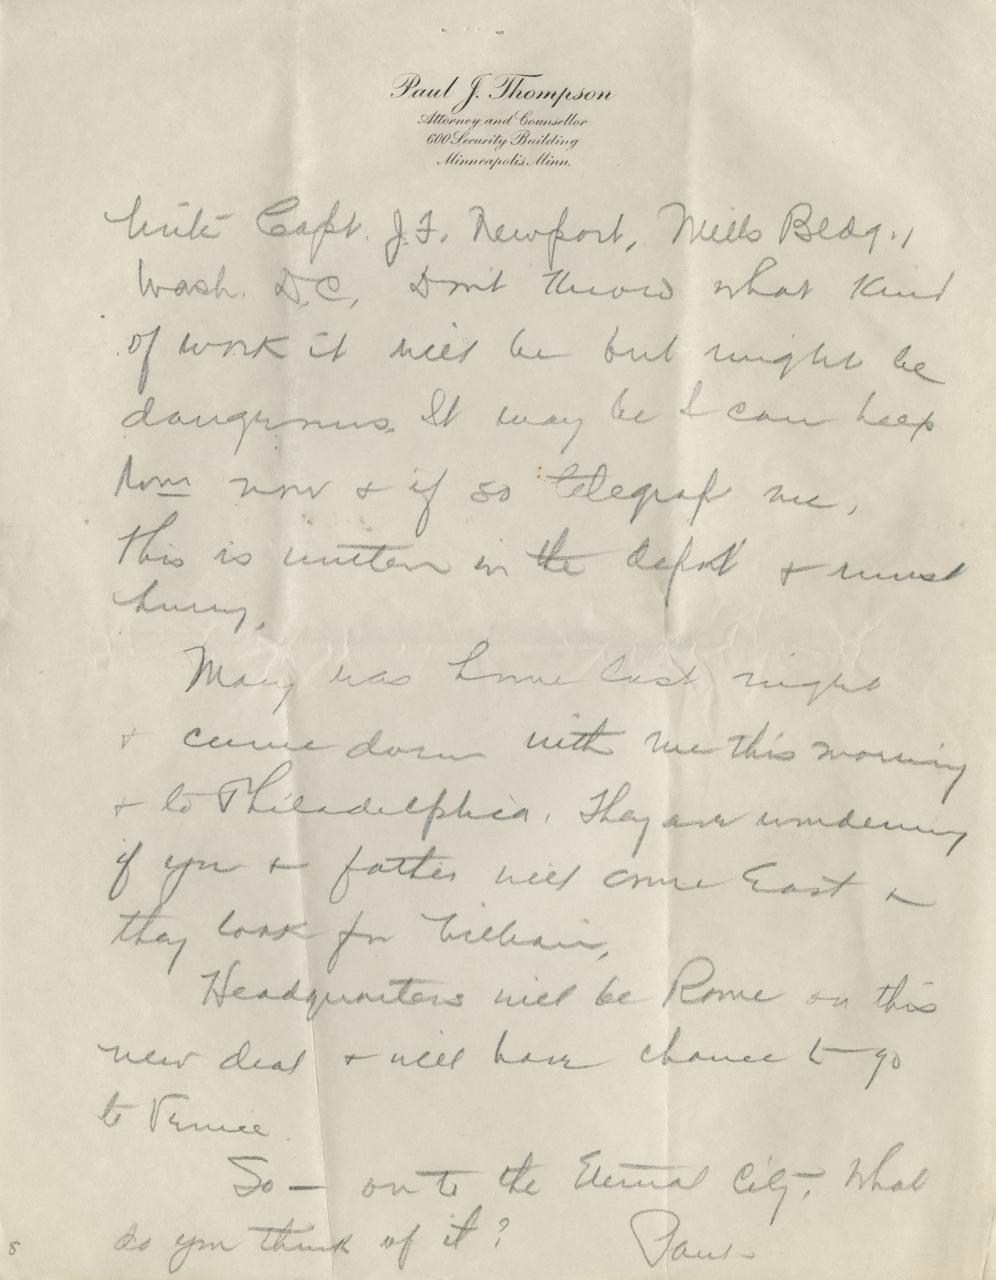 Paul J. Thompson
Attorney and Counsellor
600 Security Building
Minneapolis, Minn.
Write Capt. J.F. Newport, Mills Bldg.,
Wash. D.C. Don't know what kind
of work it will be but might be
dangerous. It may be I can keep
now & if so telegraf me,
This is written in the depot & must
hurry.
Mary was home last night
& came down with me this morning
& to Philadelphia. They are wondering
if you & father will come East &
they look for William,
Headquarters will be Rome on this
new deal & will have chance to go
to Venice.
So — on to the Eternal City. What
do you think of it? Paul
8